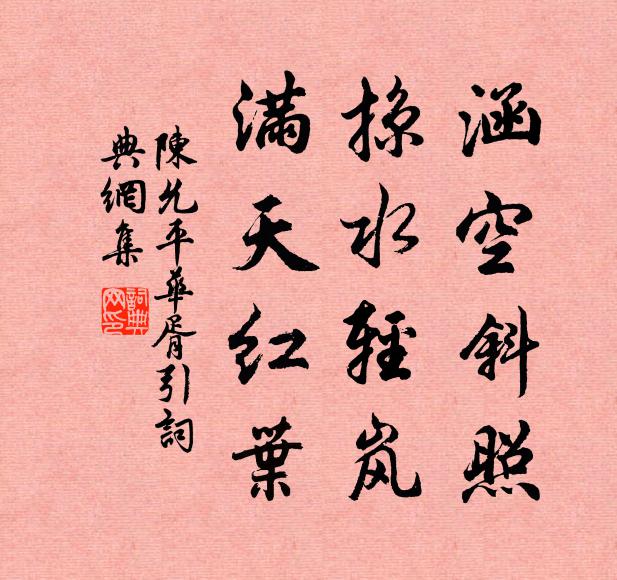 涵空斜照
掠水輕岚
满天红葉
陳允平華胥引詞
典網集
詞典網印